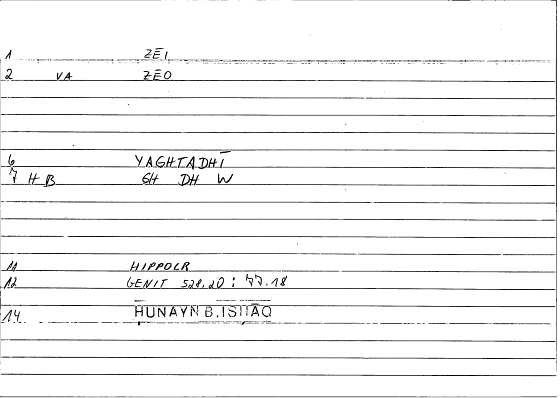 1 ZĒ1
2 VA ZĒO
6 YAGHTADHĪ
7 HB GH DH W
11 HIPPOCR
12 GENIT 528.20 : 77.18
14 ḤUNAYN B. ISḤĀQ